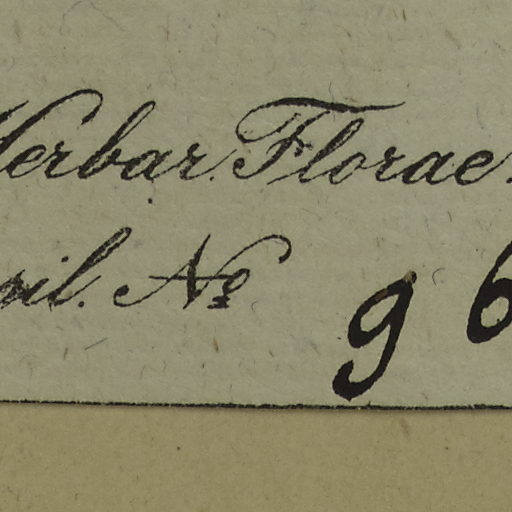 Herbar. Florae
il. No 96